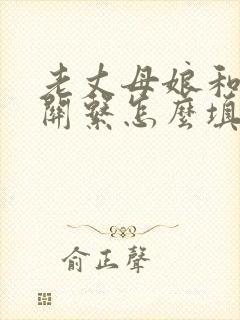 老丈母娘和
關繫怎麼填
俞正聲